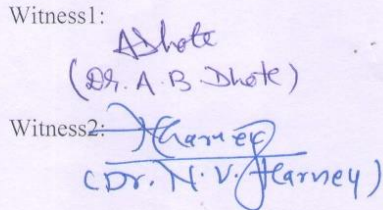 Witness1:
ADhote
(Dr. A. B. Dhote)
Witness2:
Harney
(Dr. N. V. Harney)